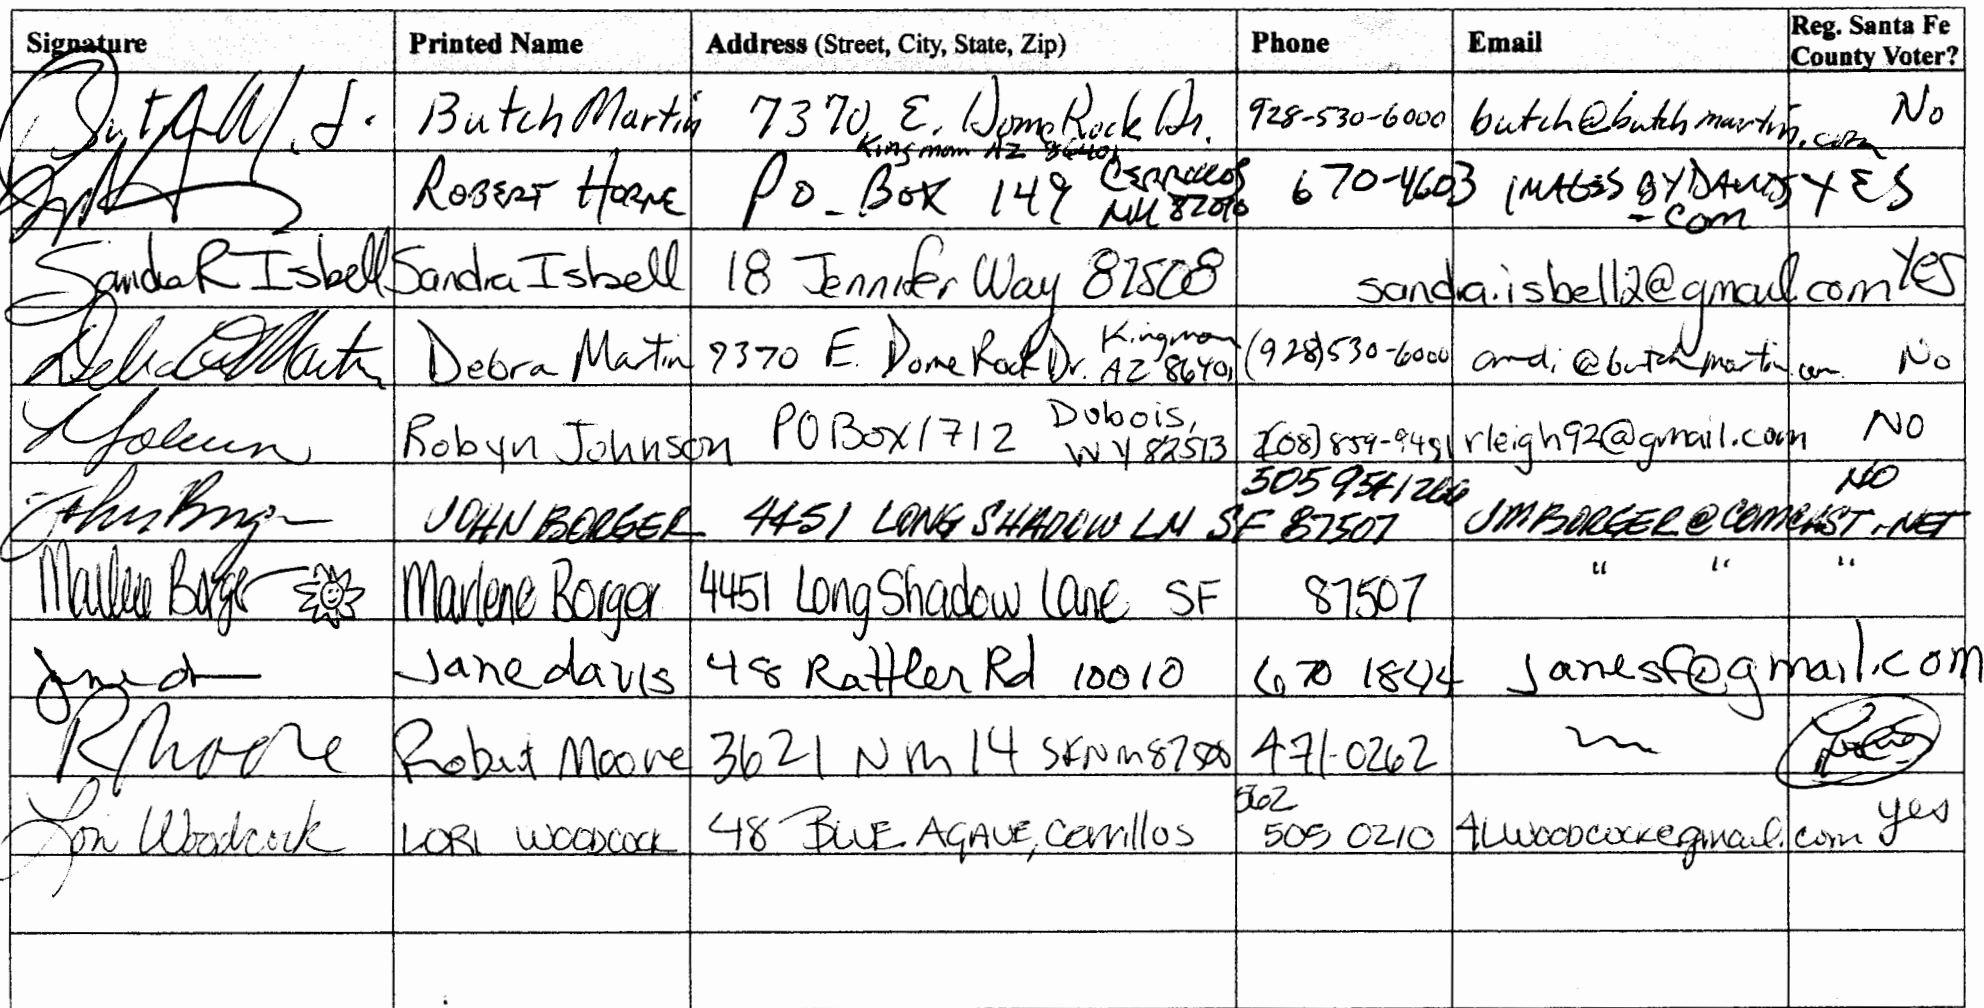 Signature Printed Name Address (Street, City, State, Zip) Phone Email Reg. Santa Fe County Voter?
Butch Martin 7370 E. Dome Rock Dr. 928-530-6000 butch@butchmartin.com No
Kingman AZ 86401
ROBERT HORNE PO_BOX 149 CERRILLOS NM 87010 670-4603 IMAGES BY DAVIDS -COM YES
Sandra R Isbell Sandra Isbell 18 Jennifer Way 87508 sandra.isbell2@gmail.com Yes
Debra Martin 7370 E. Dome Rock Dr. Kingman AZ 86401 (928)530-6000 andi@butchmartin.com No
Robyn Johnson PO Box 1712 Dubois, WY 82513 (208)859-9491 rleigh92@gmail.com NO
John Borger JOHN BORGER 4451 LONG SHADOW LN SF 87507 505 954 JMBORGER@COMCAST.NET NO
Marlene Borger Marlene Borger 4451 Long Shadow Lane SF 87507 " " "
Jane davis 48 Rattler Rd 10010 670 1844 janesf@gmail.com
R Moore Robert Moore 3621 NM 14 SFNM 87508 471-0262
Lori Woodcock LORI WOODCOCK 48 BLUE AGAVE, Cerrillos 562 505 0210 4LWOODCOCK@gmail.com yes